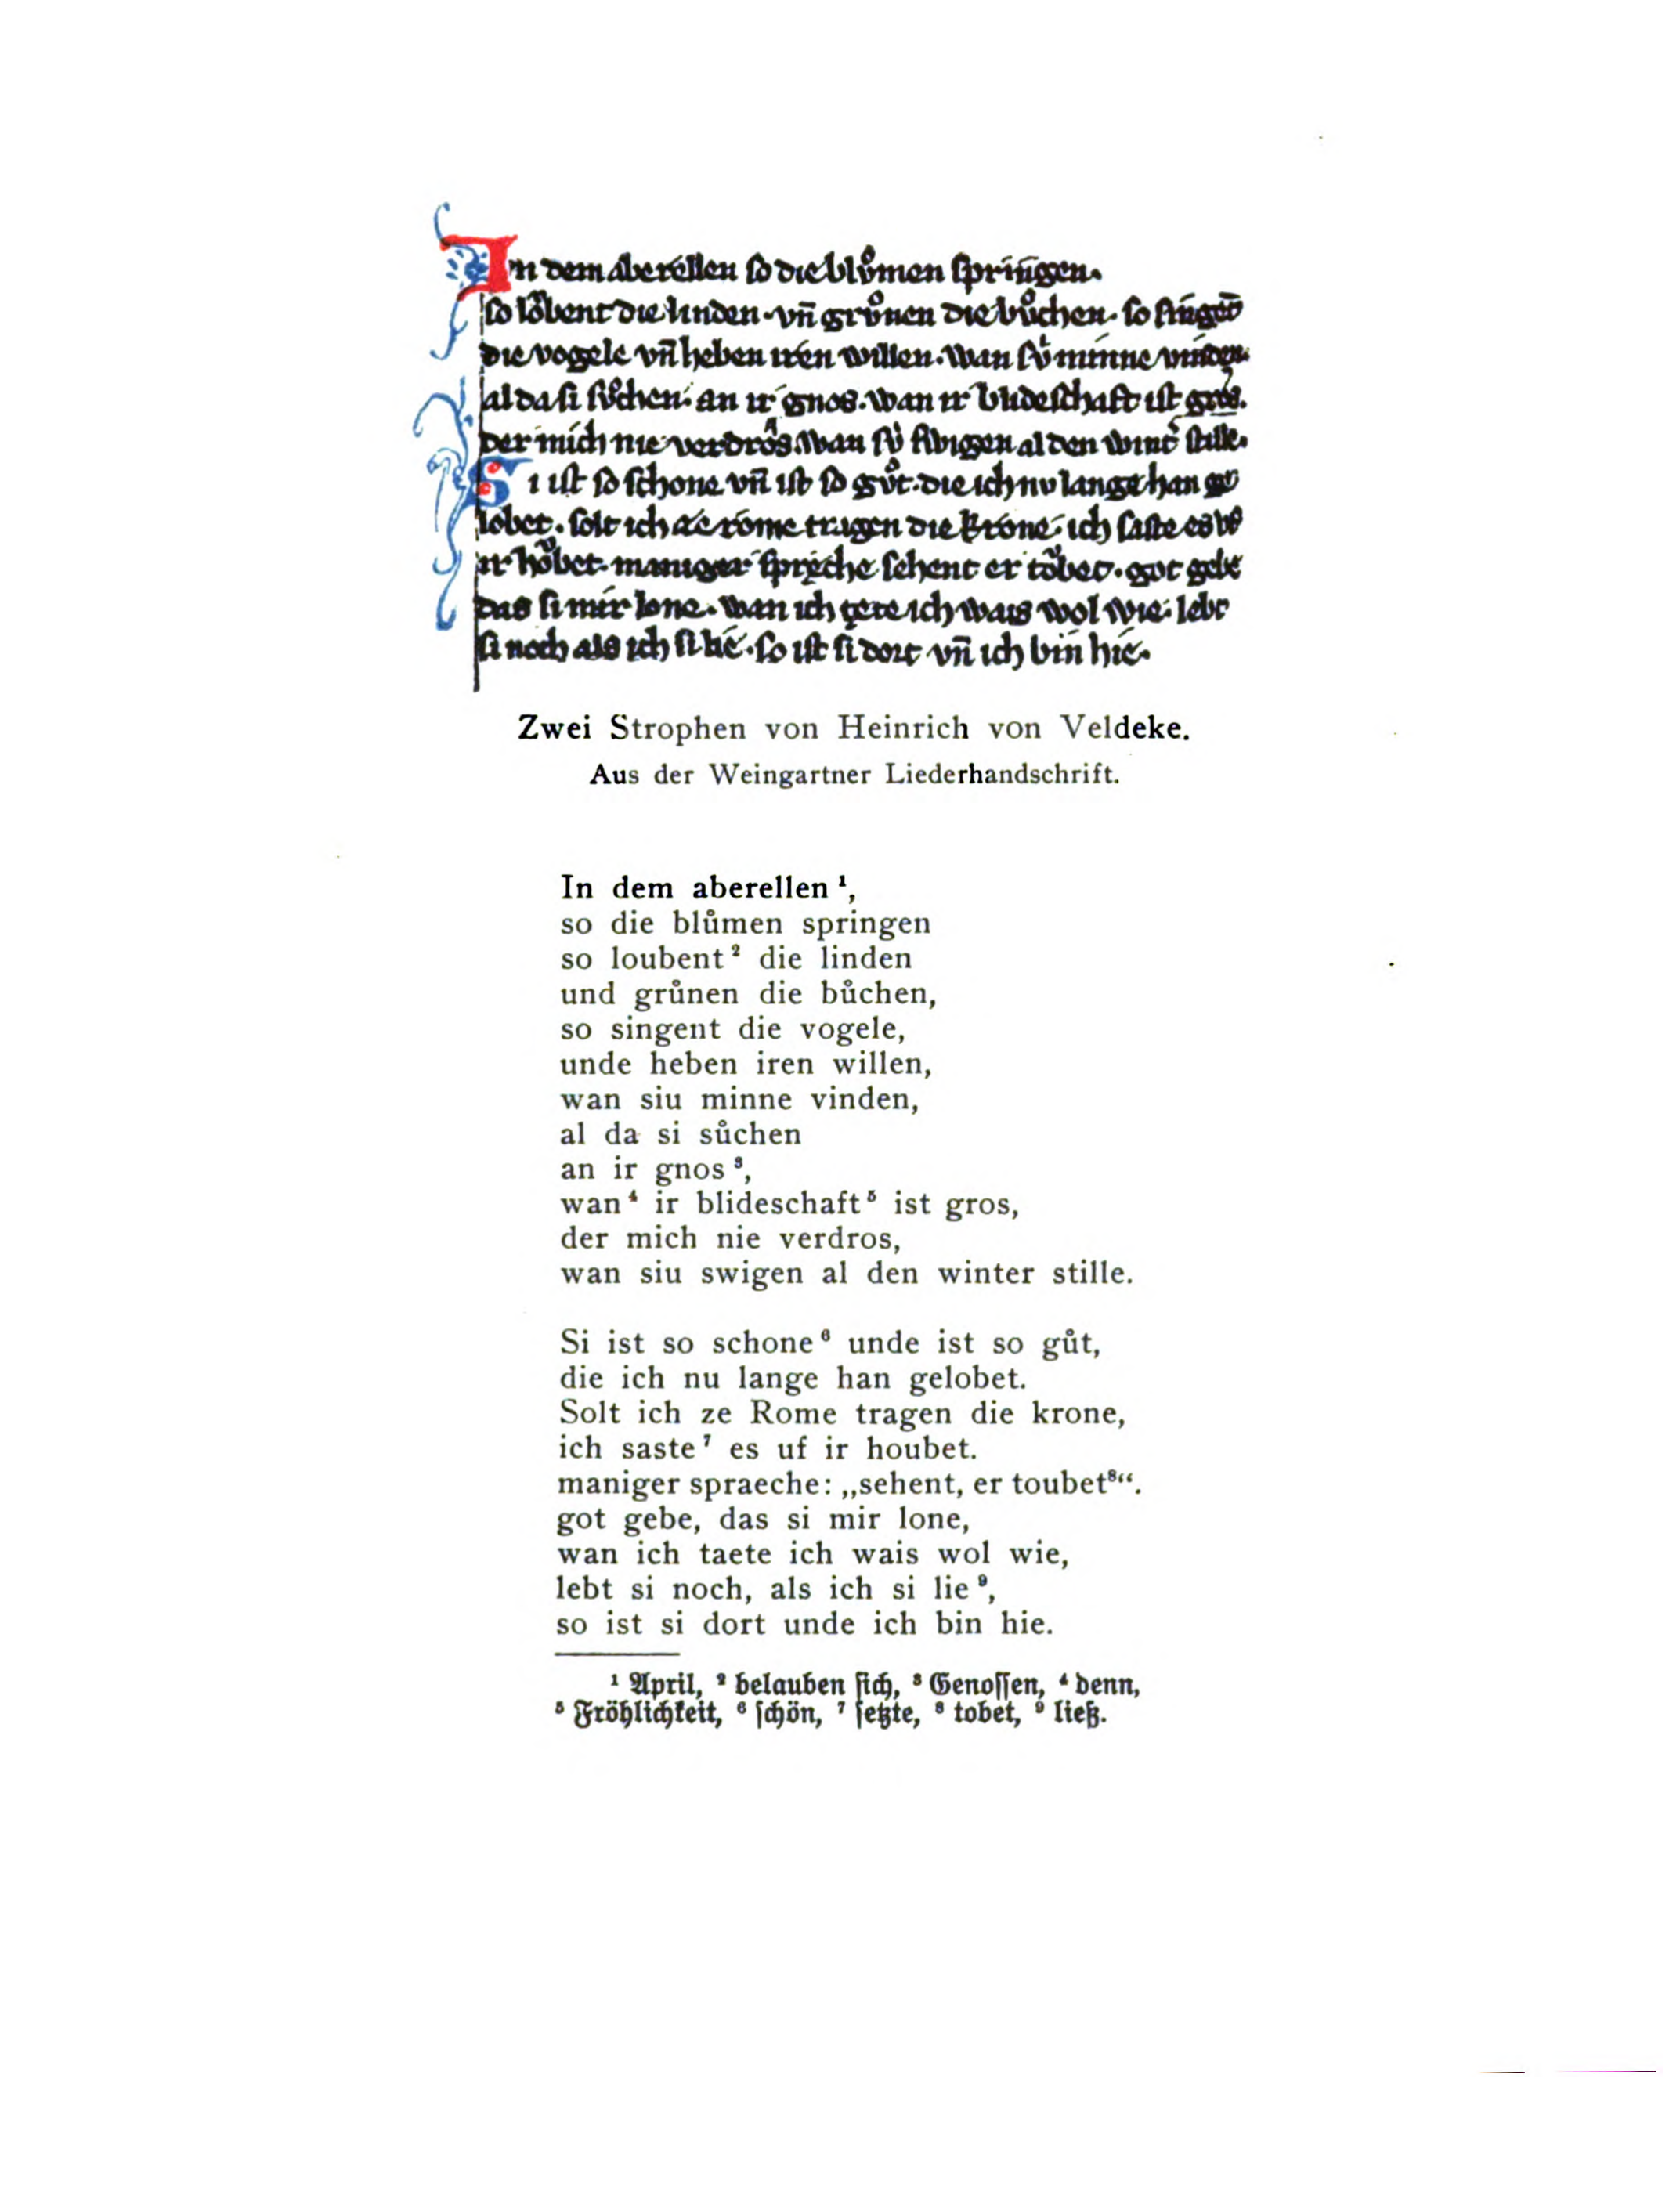 In dem aberellen so die blůmen springen.
so lo̊bent die linden. vn̄ grůnen die bůchen. so singēt
die vogele vn̄ heben iren willen. wan sú minne vinden.
al da si sůchen. an ir gnos. wan ir blideschaft ist gros.
der mich nie verdros. wan sú swigen al den wint̾ stille.
Si ist so schone vn̄ ist so gůt. die ich nv lange han ge
lobet. solt ich ze rome tragen die krone. ich saste es vf
ir ho̊bet. maniger spręche sehent er to̊bet. got gebe
das si mir lone. wan ich tęte ich wais wol wie. lebt
si noch als ich si lie. so ist si dort vn̄ ich bin hie.
Zwei Strophen von Heinrich von Veldeke.
Aus der Weingartner Liederhandschrift.
In dem aberellen ¹,
so die blůmen springen
so loubent ² die linden
und grůnen die bůchen,
so singent die vogele,
unde heben iren willen,
wan siu minne vinden,
al da si sůchen
an ir gnos ³,
wan ⁴ ir blideschaft ⁵ ist gros,
der mich nie verdros,
wan siu swigen al den winter stille.
Si ist so schone ⁶ unde ist so gůt,
die ich nu lange han gelobet.
Solt ich ze Rome tragen die krone,
ich saste ⁷ es uf ir houbet.
maniger spraeche: „sehent, er toubet⁸“.
got gebe, das si mir lone,
wan ich taete ich wais wol wie,
lebt si noch, als ich si lie ⁹,
so ist si dort unde ich bin hie.
¹ April, ² belauben sich, ³ Genossen, ⁴ denn,
⁵ Fröhlichkeit, ⁶ schön, ⁷ setzte, ⁸ tobet, ⁹ ließ.